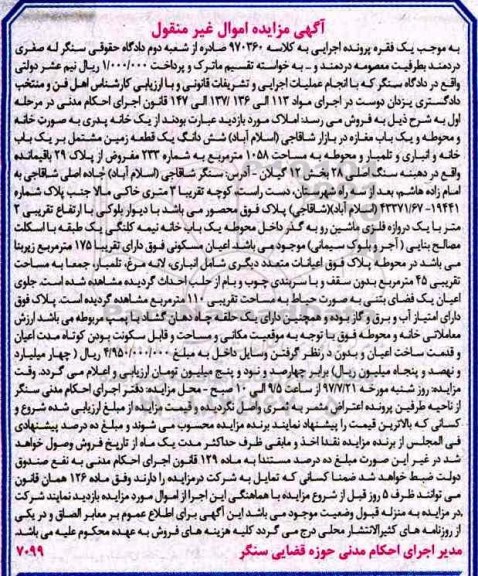 آگهی مزایده اموال غیر منقول
به موجب یک فقره پرونده اجرایی به کلاسه ۹۷۰۳۶۰ صادره از شعبه دوم دادگاه حقوقی سنگر له صغری
دردمند بطرفیت معصومه دردمند و ـ به خواسته تقسیم ماترک و پرداخت ۱/۰۰۰/۰۰۰ ریال نیم عشر دولتی
واقع در دادگاه سنگر که با انجام عملیات اجرایی و تشریفات قانونی و با ارزیابی کارشناس اهل فن و منتخب
دادگستری یزدان دوست در اجرای مواد ۱۱۳ الی ۱۳۶ /۱۳۷ الی ۱۴۷ قانون اجرای احکام مدنی در مرحله
اول به شرح ذیل به فروش می رسد: املاک مورد بازدید عبارت بودند از یک خانه پدری به صورت خانه
و محوطه و یک باب مغازه در بازار شاقاجی (اسلام آباد) شش دانگ یک قطعه زمین مشتمل بر یک باب
خانه و انباری و تلمبار و محوطه به مساحت ۱۰۵۸ مترمربع به شماره ۲۳۳ مفروض از پلاک ۲۹ باقیمانده
واقع در دهبنه سنگ اصلی ۲۸ بخش ۱۲ گیلان - آدرس: سنگر شاقاجی (اسلام آباد) جاده اصلی شاقاجی به
امام زاده هاشم، بعد از سه راه شهرستان، دست راست، کوچه تقریبا ۳ متری خاکی مالا جنب پلاک شماره
۱۹۴۴۱- ۴۳۳۷۱/۶۷ اسلام آباد)(شاقاجی) پلاک فوق محصور می باشد با دیوار بلوکی با ارتفاع تقریبی ۲
متر با یک دروازه فلزی ماشین رو به گذر داخل محوطه یک باب خانه نیمه کلنگی یک طبقه با اسکلت
مصالح بنایی ( آجر و بلوک سیمانی) موجود می باشد. اعیان مسکونی فوق دارای تقریبا ۱۷۵ مترمربع زیربنا
می باشد در محوطه پلاک فوق اعیانات متعدد دیگری شامل انباری، لانه مرغ، تلمبار، جمعا به مساحت
تقریبی ۴۵ مترمربع بدون سقف و با سربندی چوب و بام از حلب احداث گردیده مشاهده شده است. جلوی
اعیان یک فضای بتنی به صورت حیاط به مساحت تقریبی ۱۱۰ مترمربع مشاهده گردیده است. پلاک فوق
دارای امتیاز آب و برق و گاز بوده و همچنین دارای یک حلقه چاه دهان گشاد با پمپ مربوطه می باشد ارزش
معاملاتی خانه و محوطه فوق با توجه به موقعیت مکانی و مساحت و قابل سکونت بودن کوتاه مدت اعیان
و قدمت ساخت اعیان و بدون در نظر گرفتن وسایل داخل به مبلغ ۴/۹۵۰/۰۰۰/۰۰۰ ریال ( چهار میلیارد
و نهصد و پنجاه میلیون ریال) برابر چهارصد و نود و پنج میلیون تومان ارزیابی و اعلام می گردد. وقت
مزایده: روز شنبه مورخه ۹۷/۷/۲۱ از ساعت ۹/۵ الی ۱۰ صبح - محل مزایده: دفتر اجرای احکام مدنی سنگر
از ناحیه طرفین پرونده اعتراض مثمر به ثمری واصل نگردیده و قیمت مزایده از مبلغ ارزیابی شده شروع و
کسانی که بالاترین قیمت را پیشنهاد نمایند برنده مزایده محسوب می شوند و مبلغ ده درصد پیشنهادی
فی المجلس از برنده مزایده نقدا اخذ و مابقی ظرف حداکثر مدت یک ماه از تاریخ فروش وصول خواهد
شد در غیر این صورت مبلغ ده درصد مستندا به ماده ۱۲۹ قانون اجرای احکام مدنی به نفع صندوق
دولت ضبط خواهد شد ضمنا کسانی که تمایل به شرکت درمزایده را دارند وفق ماده ۱۲۶ همان قانون
می توانند ظرف ۵ روز قبل از شروع مزایده با هماهنگی این اجرا از اموال مورد مزایده بازدید نمایند شرکت
.در مزایده به منزله قبول وضعیت موجود می باشد این آگهی برای اطلاع عموم بر معابر الصاق و در یکی
از روزنامه های کثیرالانتشار محلی درج می گردد کلیه هزینه های فروش به عهده محکوم علیه می باشد
مدیر اجرای احکام مدنی حوزه قضایی سنگر ۷۰۹۹